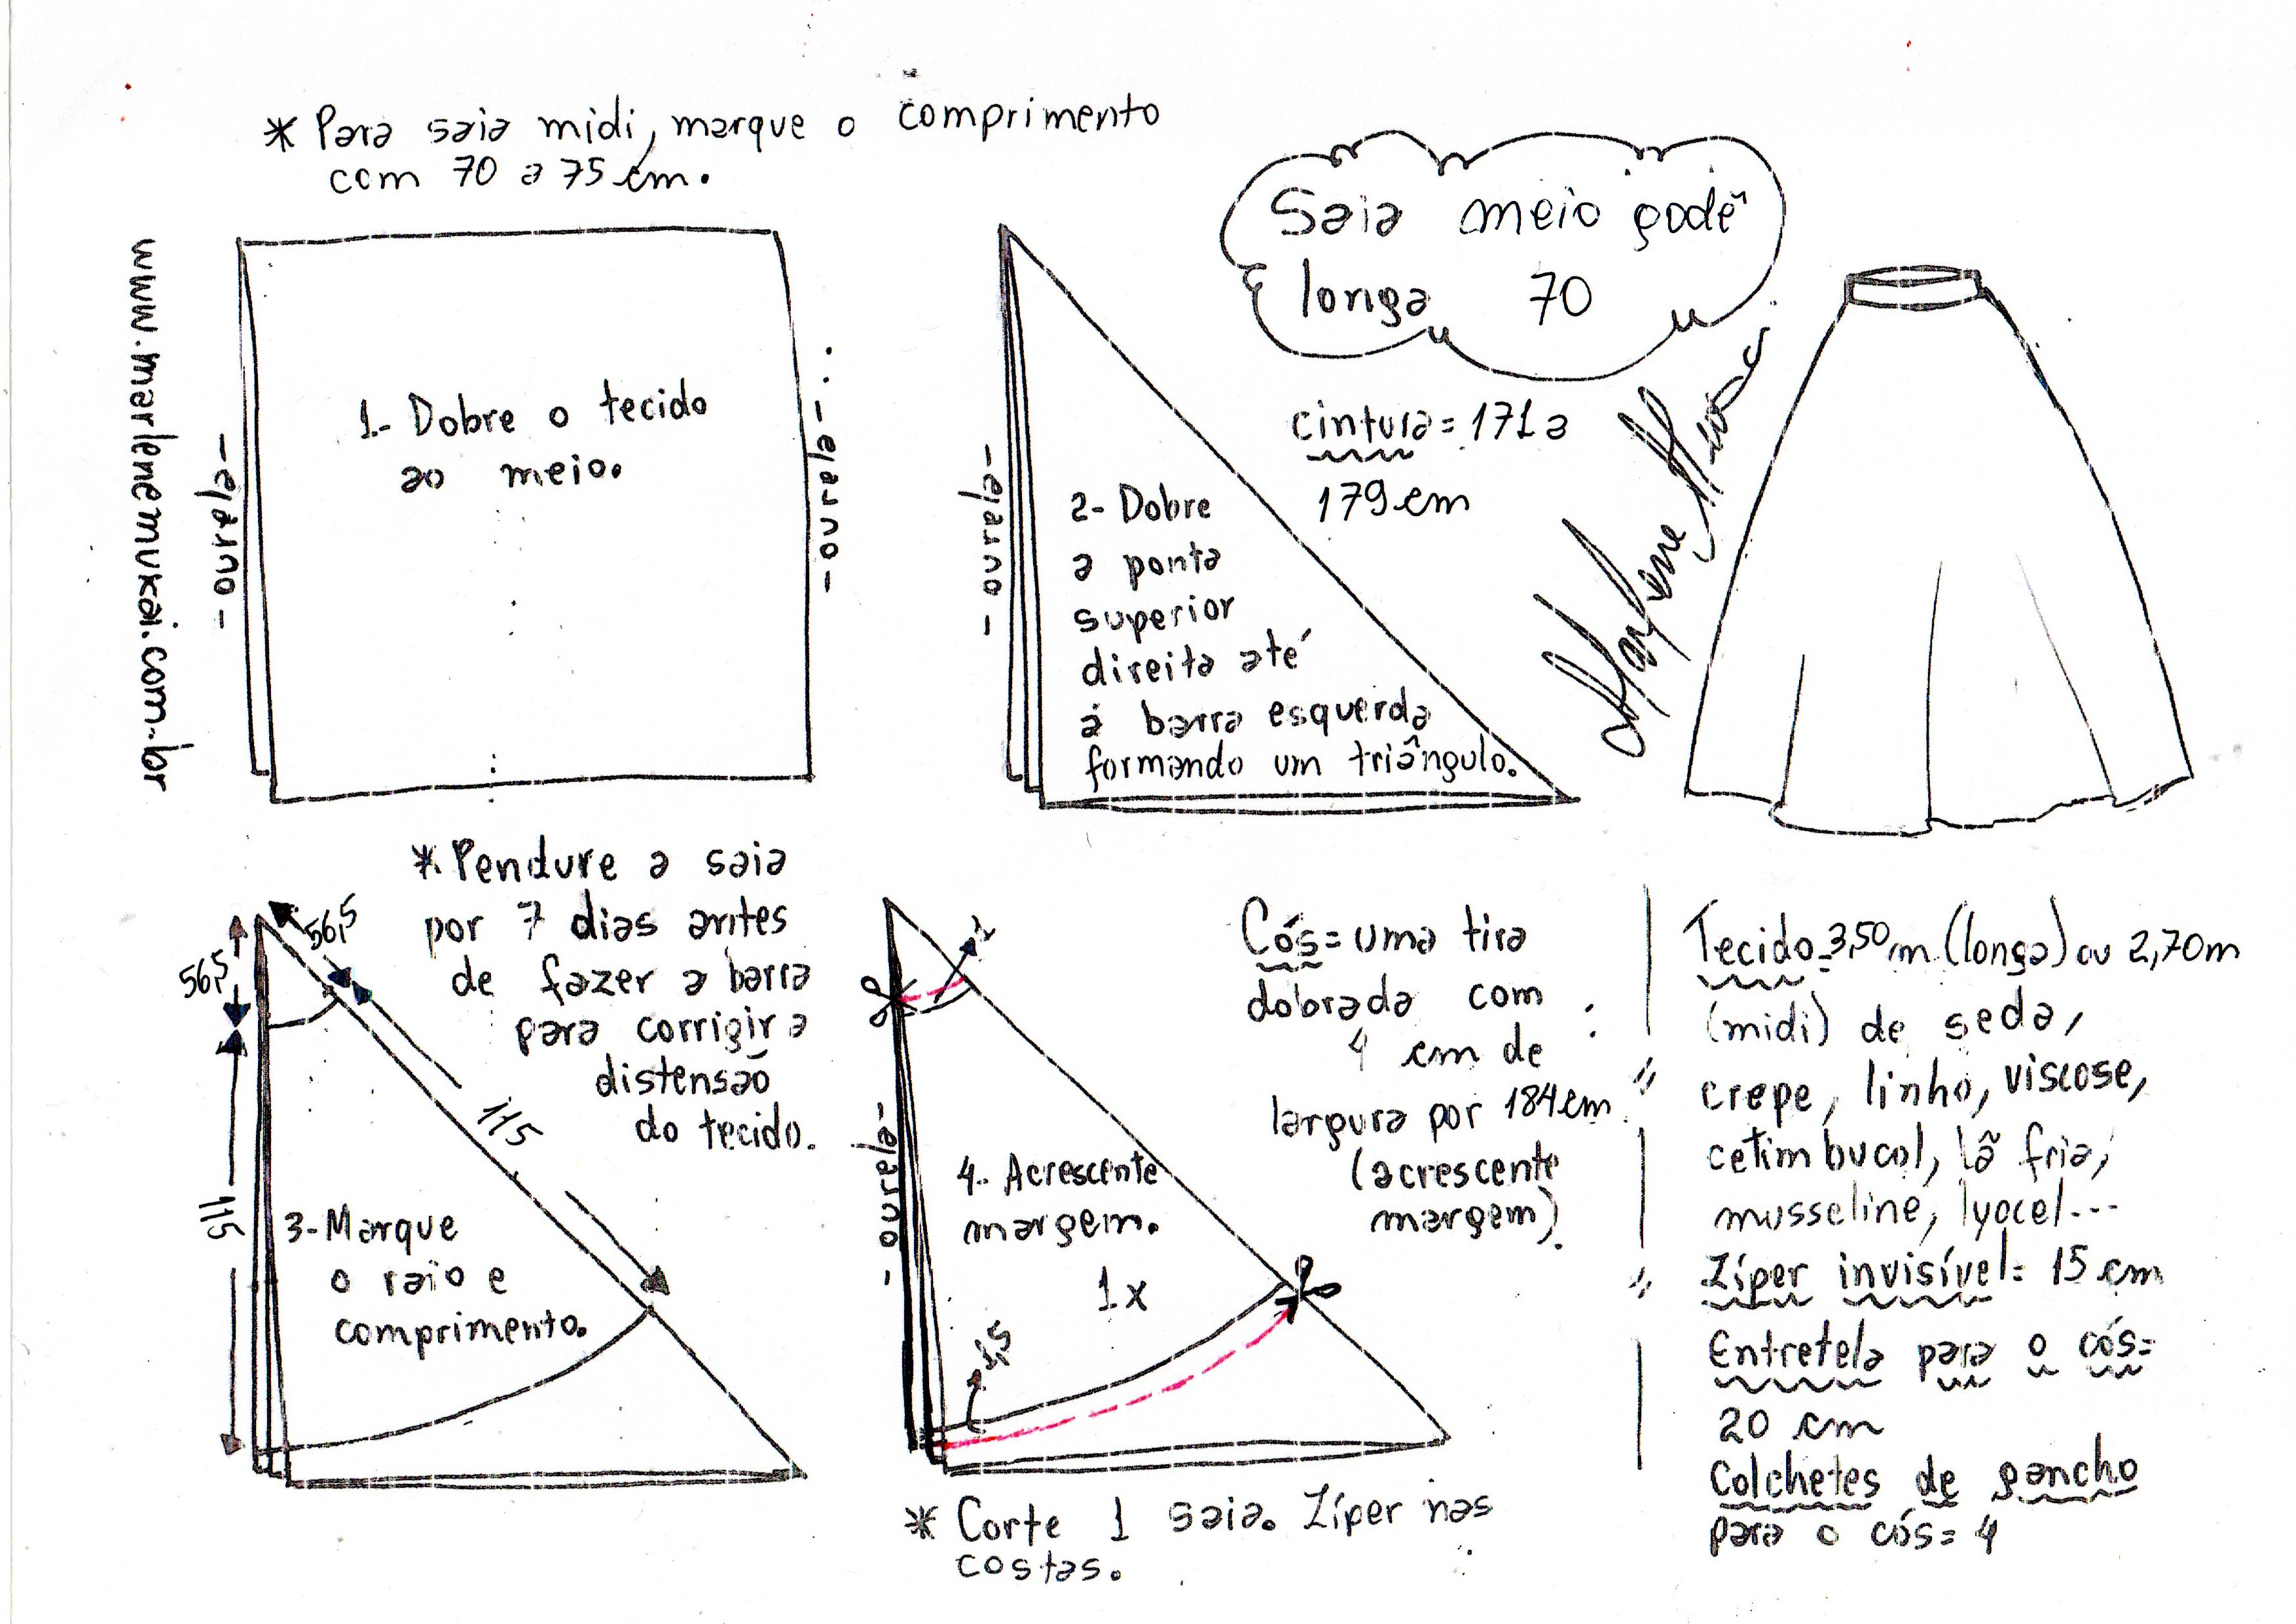 * Para saia midi, marque o comprimento
com 70 a 75 cm.
Saia meio godê
longa 70
www.marlenemukai.com.br
- ourela -
1- Dobre o tecido
ao meio.
- ourela -
- ourela -
2- Dobre
a ponta
superior
direita até
à barra esquerda
formando um triângulo.
cintura = 171 a
179 cm
Marlene Mukai
* Pendure a saia
por 7 dias antes
de fazer a barra
para corrigir a
distensão
do tecido.
56,5
56,5
115
115
3- Marque
o raio e
comprimento.
2
- ourela -
4- Acrescente
margem.
1x
1,5
* Corte 1 saia. Zíper nas
costas.
Cós = uma tira
dobrada com
4 cm de
largura por 184 cm
(acrescente
margem).
Tecido = 3,50 m (longa) ou 2,70 m
(midi) de seda,
crepe, linho, viscose,
cetim bucol, lã fria,
musseline, lyocel...
Zíper invisível = 15 cm
Entretela para o cós =
20 cm
Colchetes de gancho
para o cós = 4